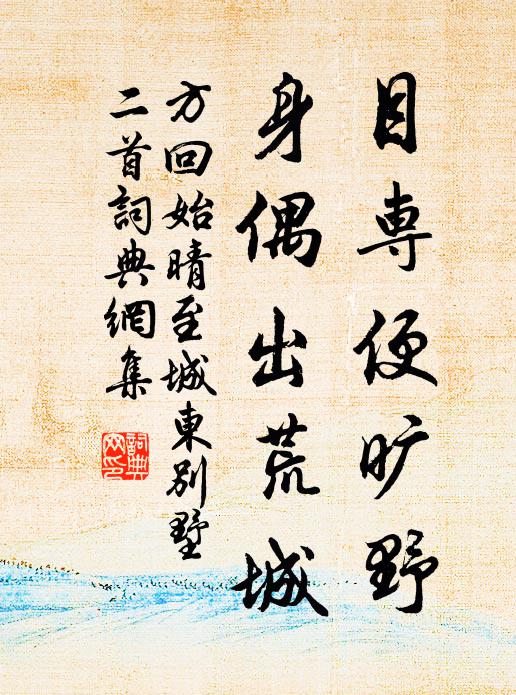 目専便旷野
身偶出荒城
方回始晴至城東别墅
二首詞典網集
詞典
网印